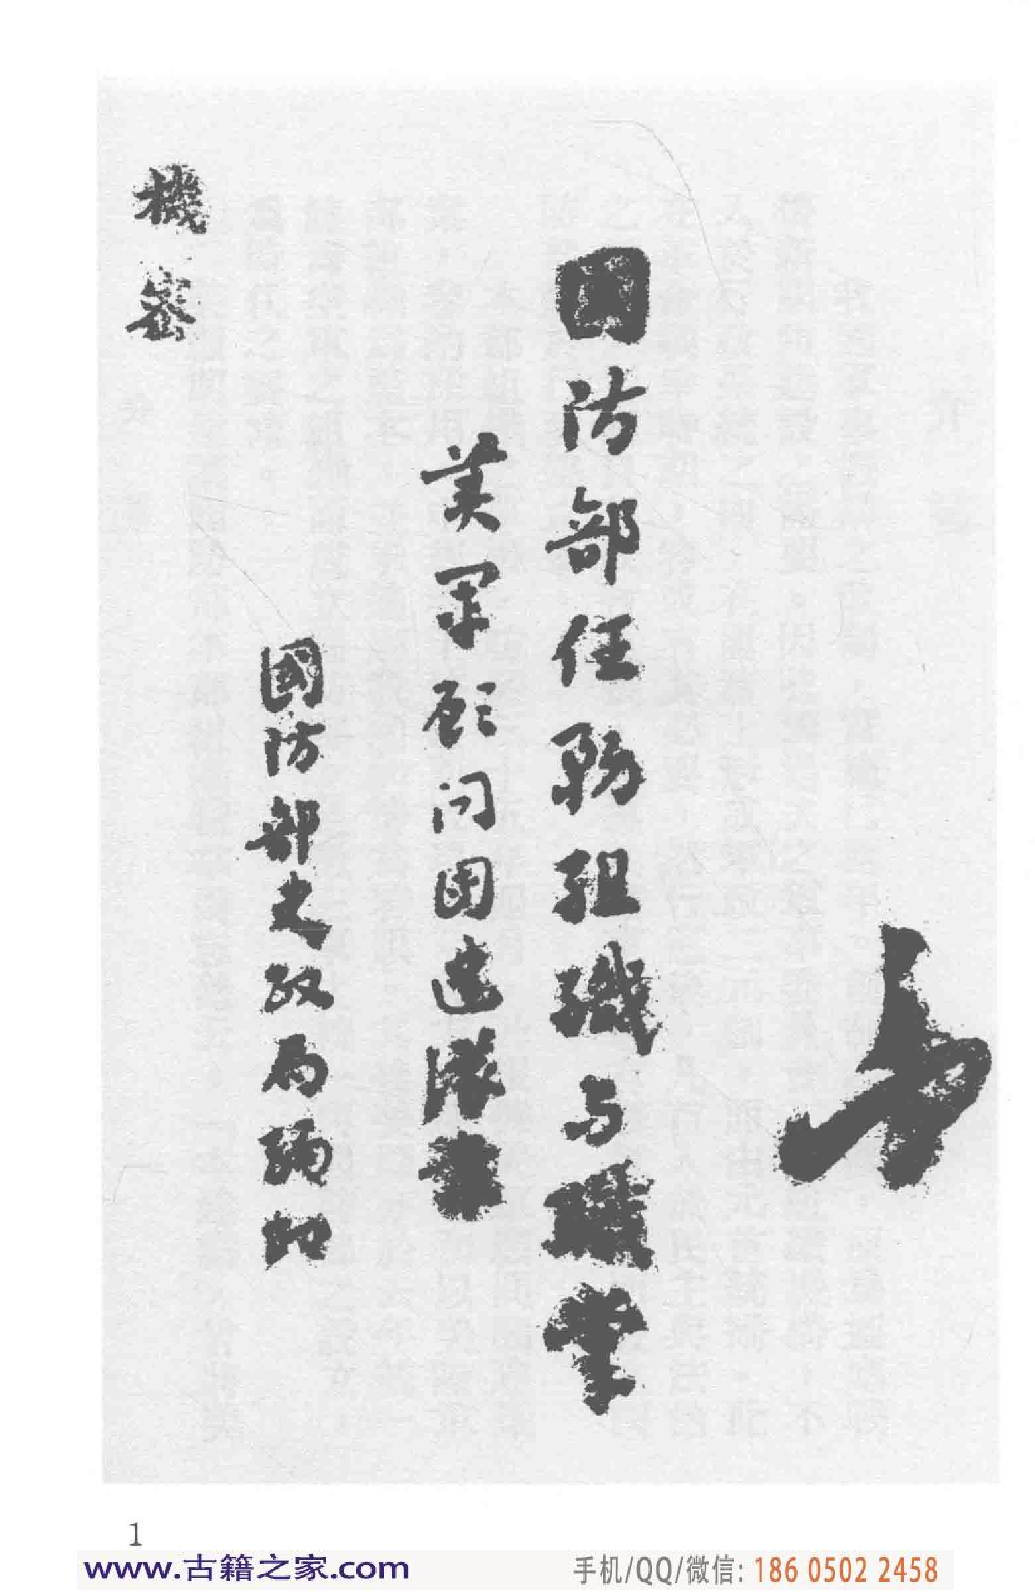 國防部任務組織与職掌
美軍顧问团建議書
國防部史政局編印
機密
1
www.古籍之家.com
手机/QQ/微信: 186 0502 2458